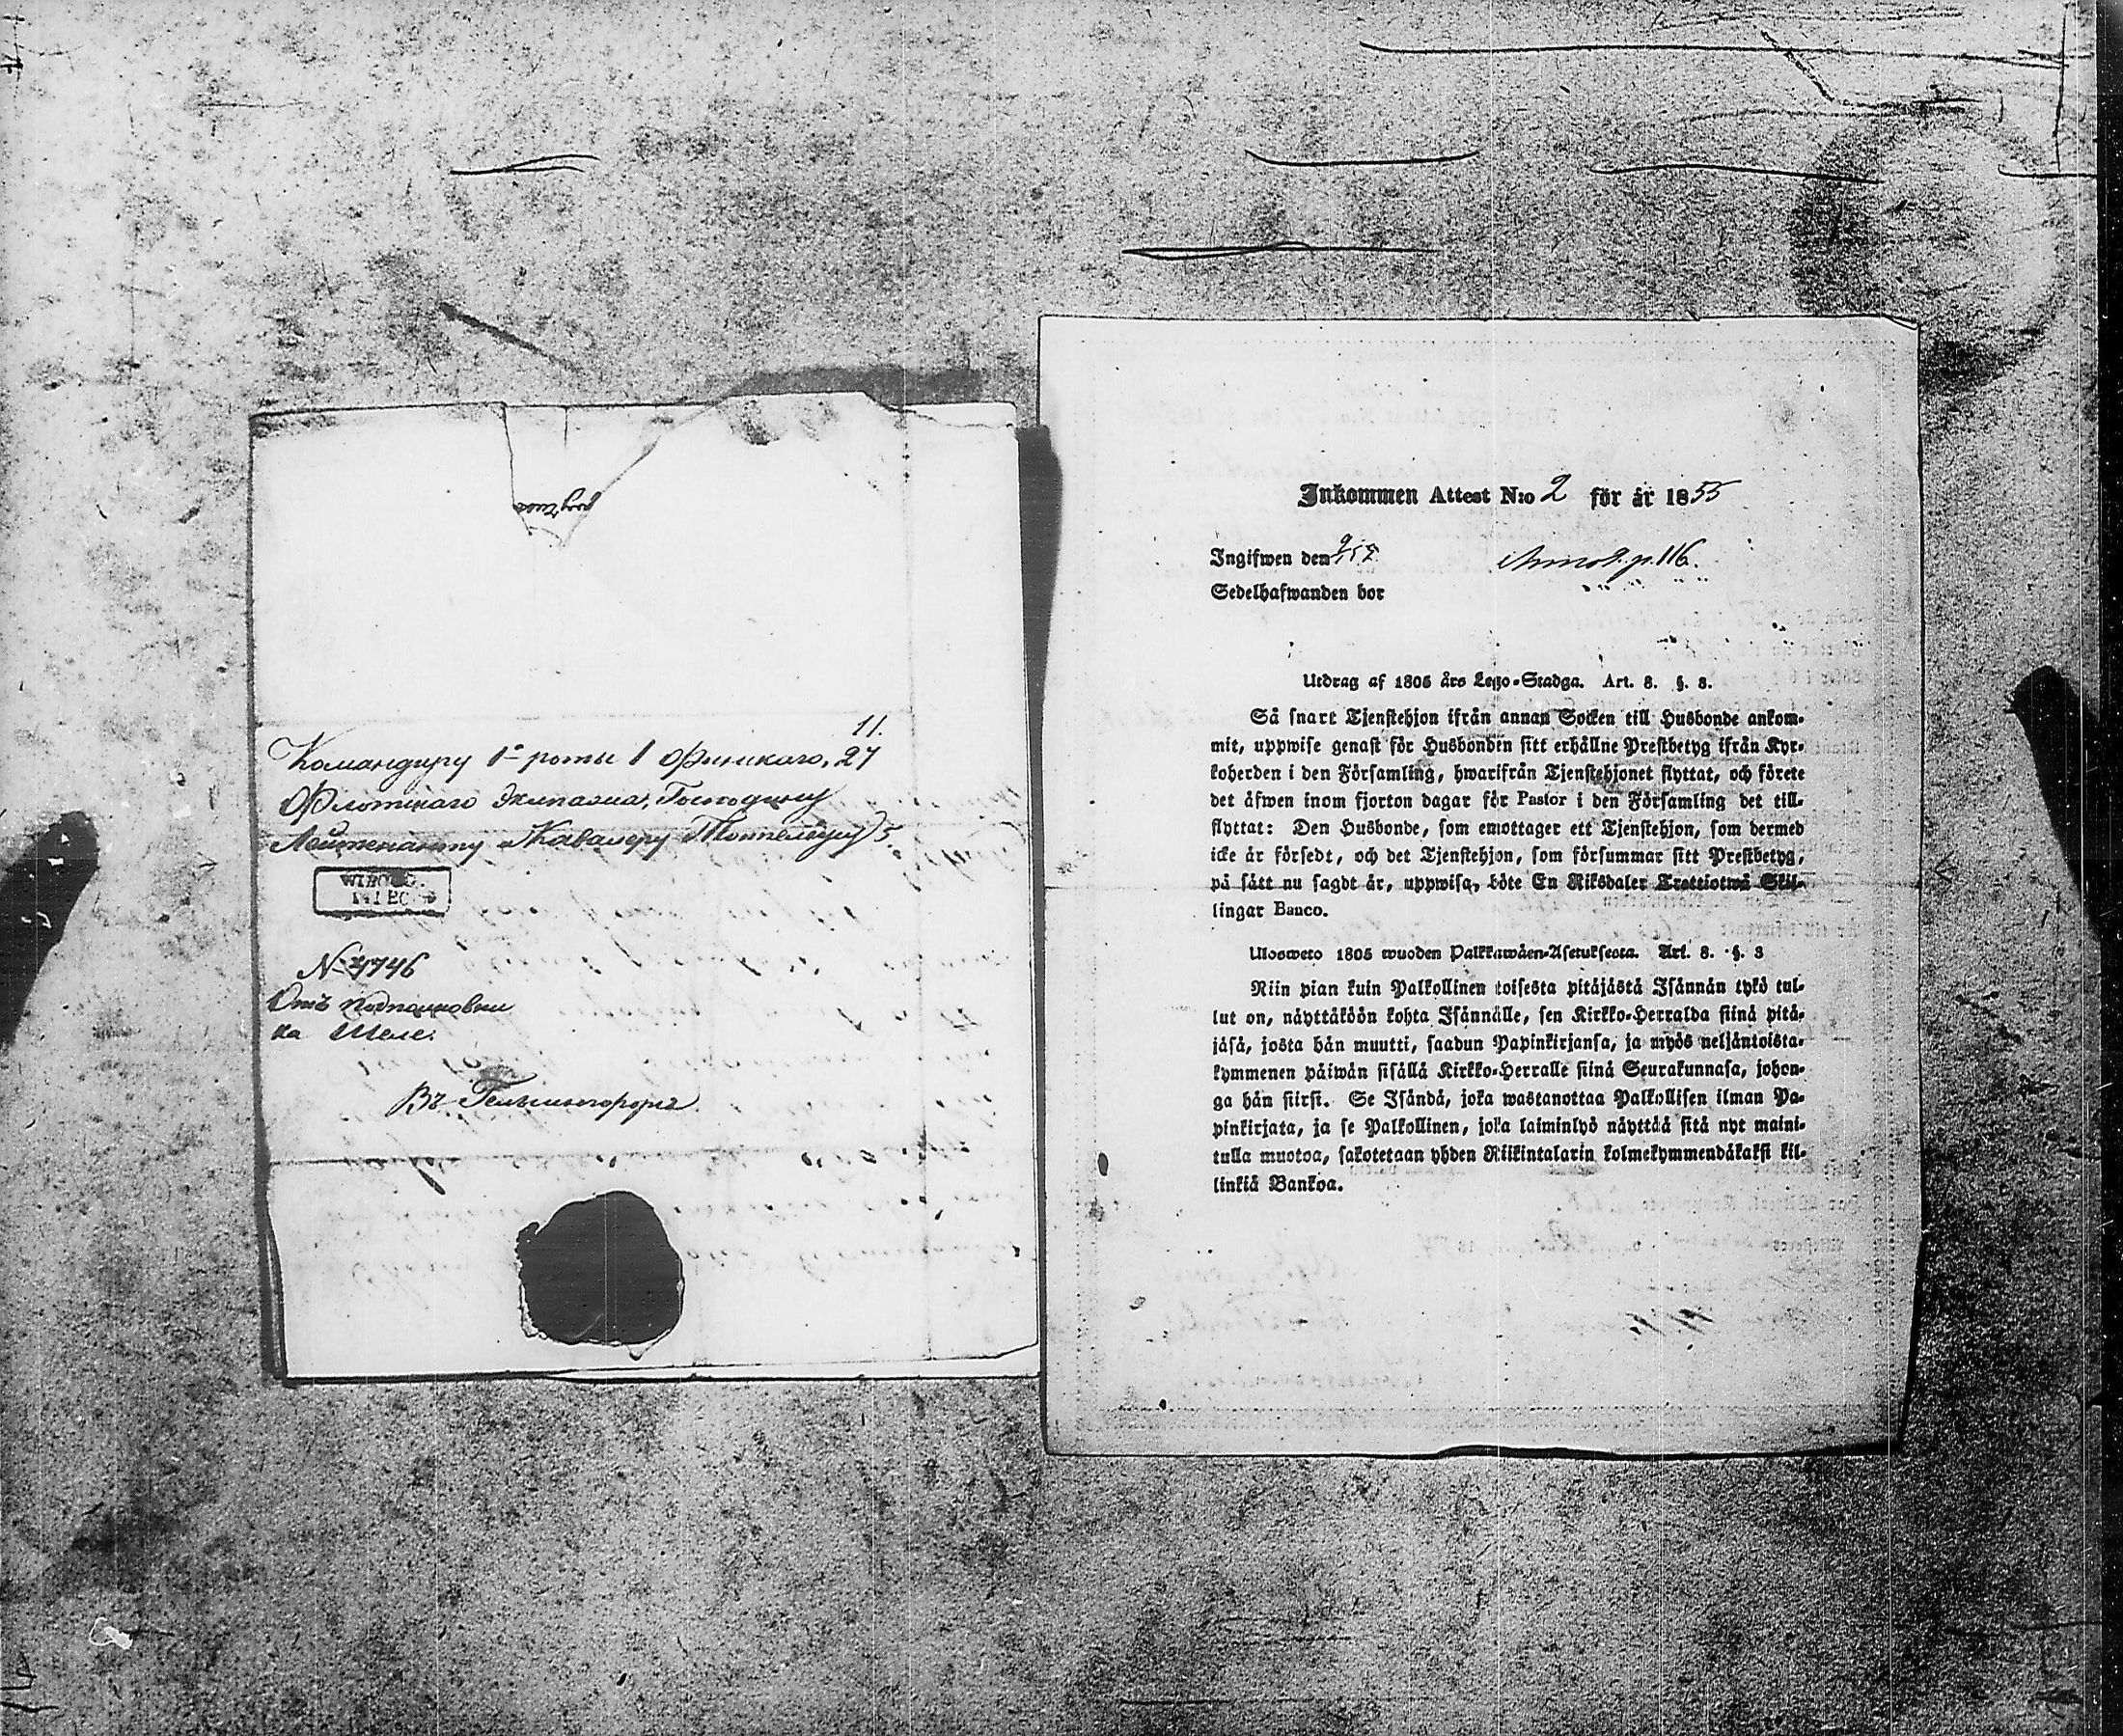 11.
Командиру 1й роты 1 Финскаго, 27
Флотскаго Экипажа, Господину
Лейтенанту и Кавалеру 5.
WIBORG.
1 DEC
№ 4746
Отъ подполковни
ка Шеле.
Въ Гельсингфорсъ
Inkommen Attest N:o 2 för år 1855
Ingifwen den
Annot. p. 116.
Sedelhafwanden bor
Utdrag af 1805 års Lego-Stadga. Art. 8. §. 8.
Så snart Tjenstehjon ifrån annan Socken till Husbonde ankom-
mit, uppwise genast för Husbonden sitt erhållne Prestbetyg ifrån Kyr-
koherden i den Församling, hwarifrån Tjenstehjonet flyttat, och förete
det äfwen inom fjorton dagar för Pastor i den Församling det till-
flyttat: Den Husbonde, som emottager ett Tjenstehjon, som dermed
icke är försedt, och det Tjenstehjon, som försummar sitt Prestbetyg,
på sätt nu sagdt är, uppwisa, böte En Riksdaler Trettiotwå Skil-
lingar Banco.
Ulosweto 1805 wuoden Palkkawäen-Asetuksesta. Art. 8. §. 3
Niin pian kuin Palkollinen toisesta pitäjästä Isännän tykö tul-
lut on, näyttäköön kohta Isännälle, sen Kirkko-Herralda siinä pitä-
jäsä, josta hän muutti, saadun Papinkirjansa, ja myös neljäntoista-
kymmenen päiwän sisällä Kirkko-Herralle siinä Seurakunnasa, johon-
ga hän siirsi. Se Isändä, joka wastanottaa Palkollisen ilman Pa-
pinkirjata, ja se Palkollinen, joka laiminlyö näyttää sitä nyt maini-
tulla muotoa, sakotetaan yhden Riikintalarin kolmekymmendäkaksi kil-
linkiä Bankoa.